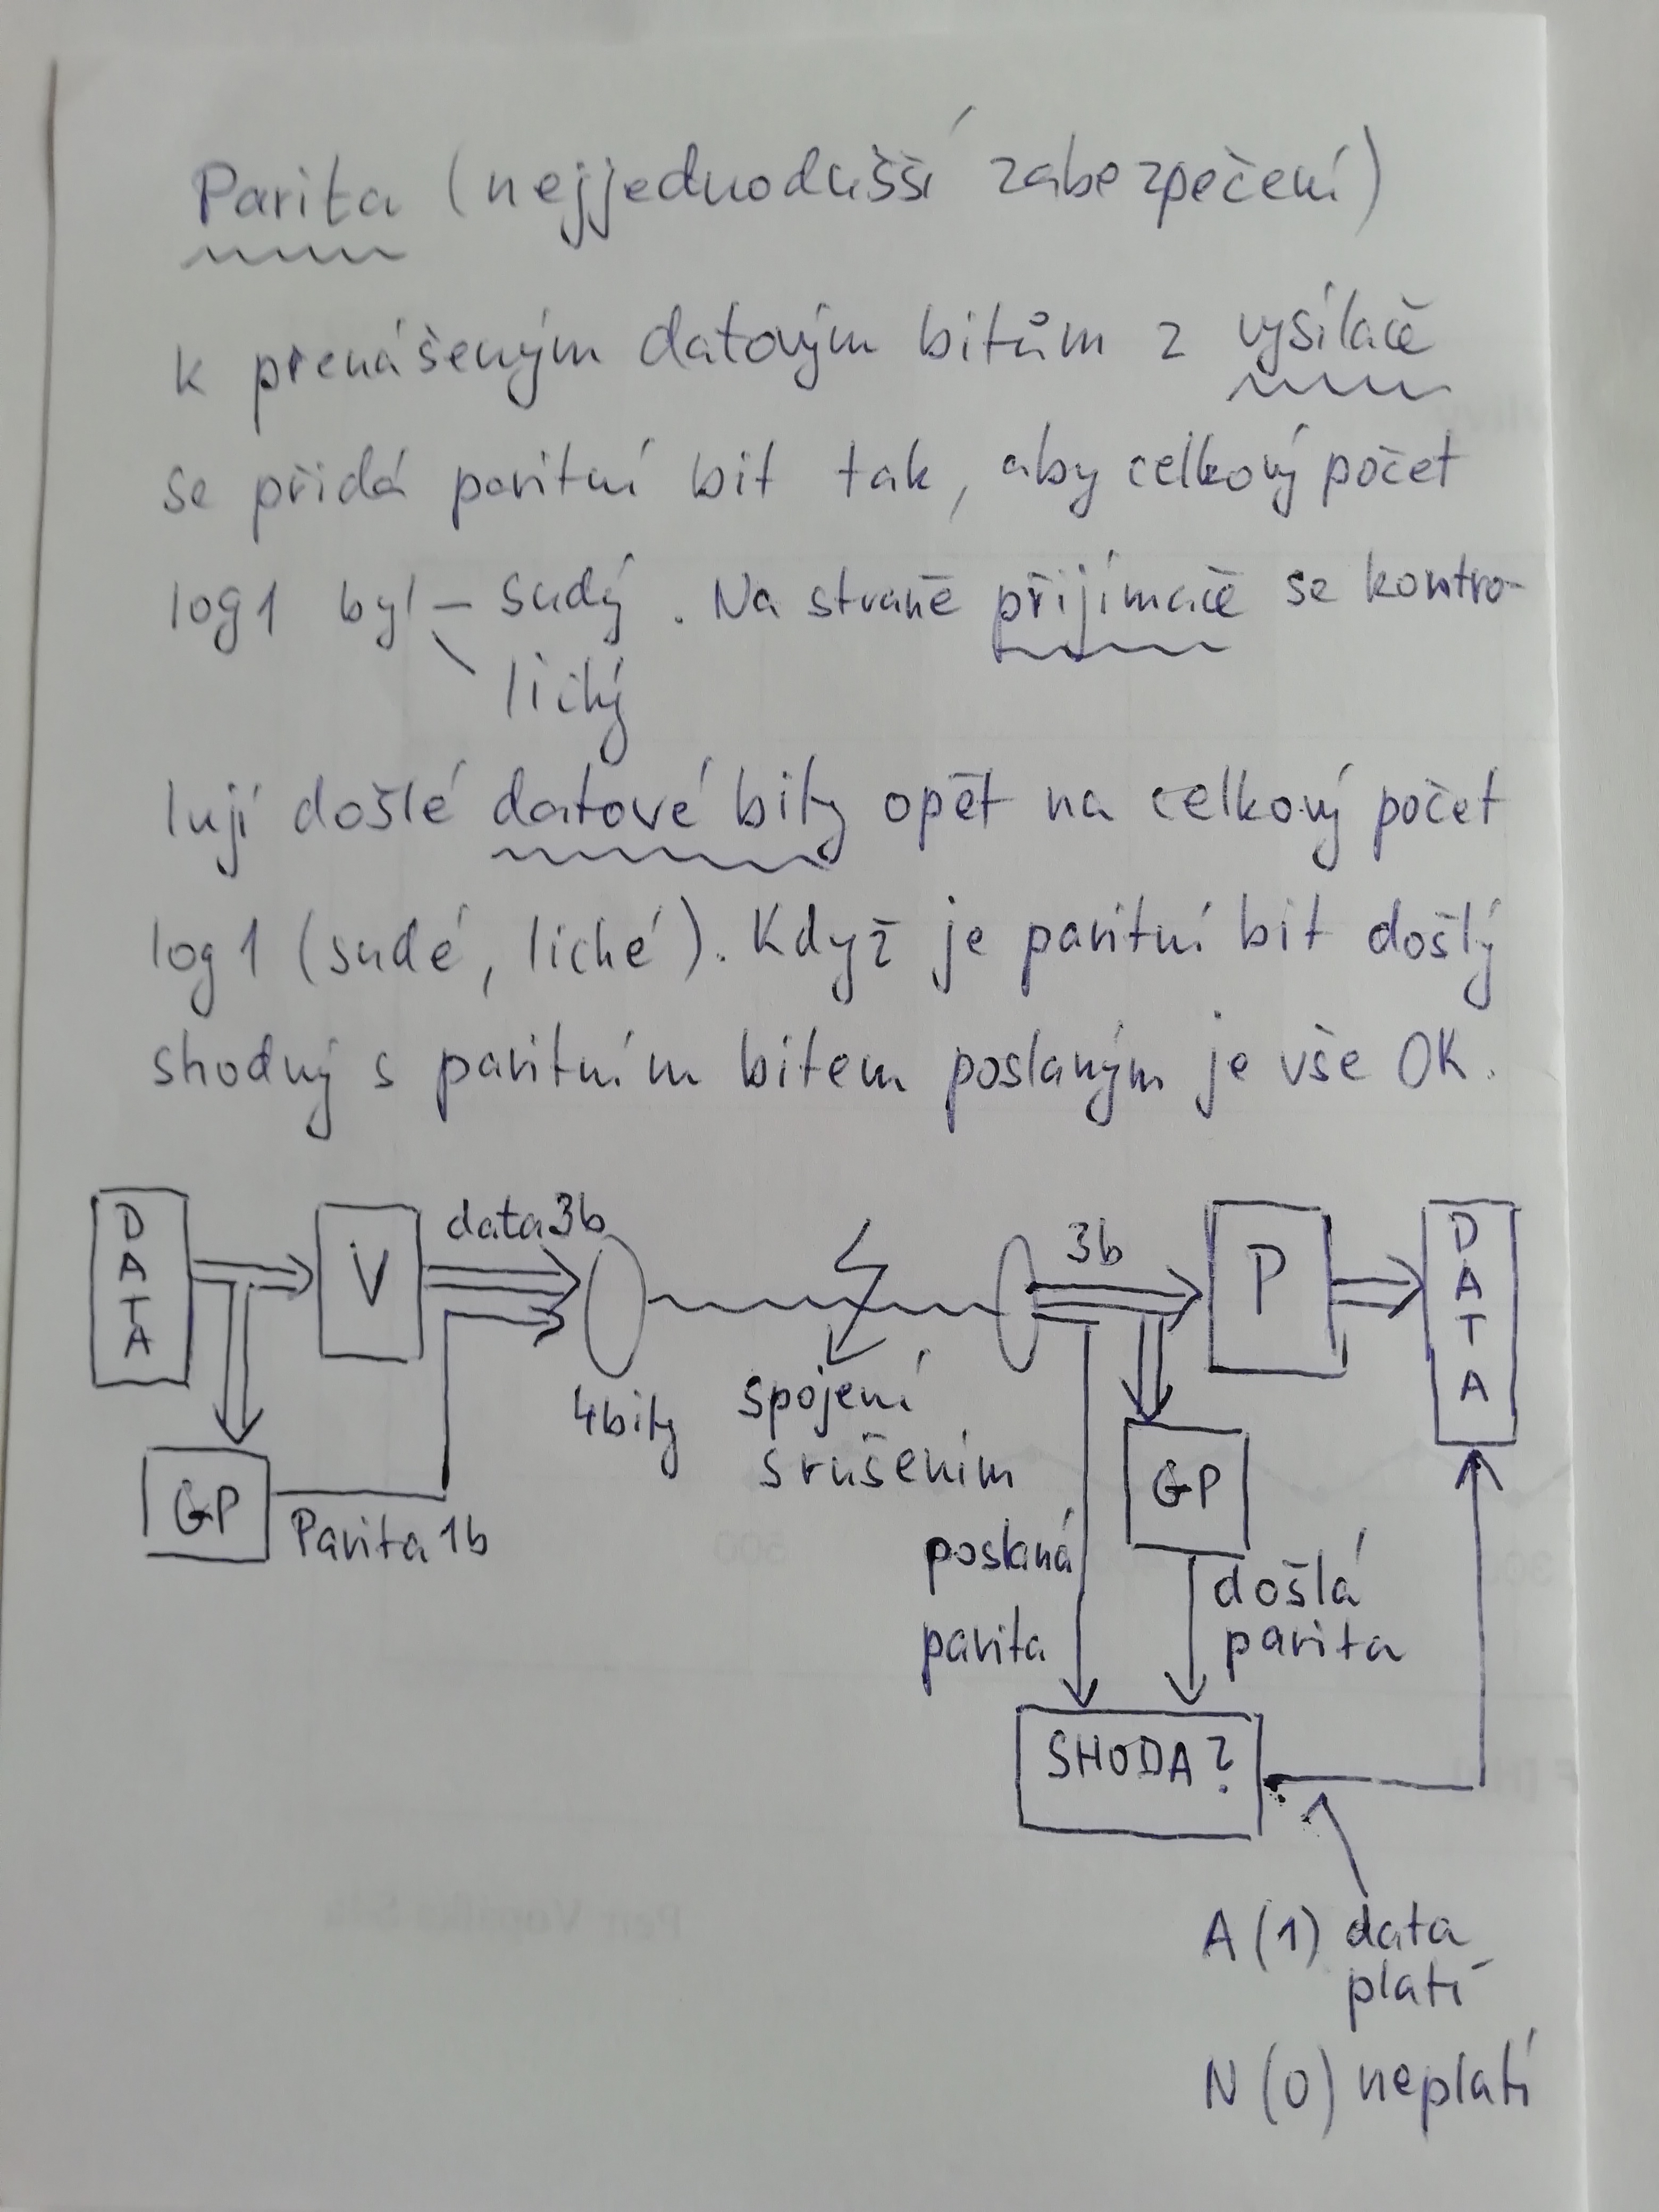 Parita (nejjednodušší zabezpečení)
k přenášeným datovým bitům z vysílače
se přidá paritní bit tak, aby celkový počet
log1 byl – sudý. Na straně přijímače se kontro-
\ lichý
lují došlé datové bity opět na celkový počet
log1 (sudé, liché). Když je paritní bit došlý
shodný s paritním bitem poslaným je vše OK.
DATA
V
data 3b
3b
P
DATA
4bity
spojení
s rušením
GP
Parita 1b
GP
poslaná
parita
došlá
parita
SHODA?
A(1) data
platí
N(0) neplatí